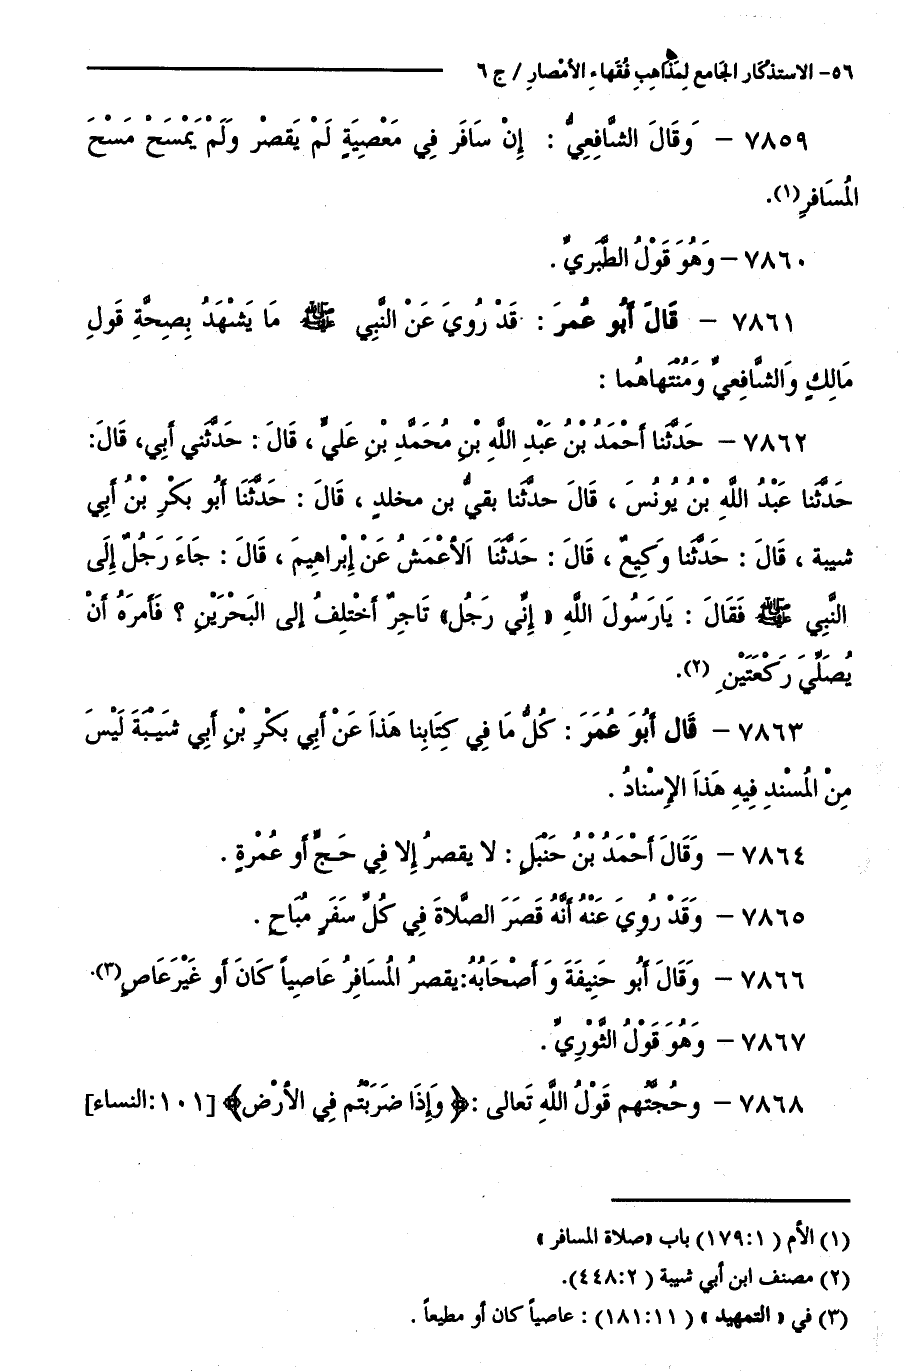 ٥٦- الاستذكار الجامع لِمذَاهِبِ فُقَهاءِ الأمْصارِ / ج ٦
٧٨٥٩ – وَقَالَ الشَّافِعِيُّ : إِنْ سَافَرَ فِي مَعْصِيَةٍ لَمْ يَقصرْ وَلَمْ يَمْسَحْ مَسْحَ
المُسَافرِ(١).
٧٨٦٠ – وَهُوَ قَوْلُ الطَّبَرِيِّ .
٧٨٦١ – قَالَ أَبُو عُمرَ : قَدْ رُوِيَ عَنْ النَّبِي ﷺ مَا يَشْهَدُ بِصِحَّةِ قَولِ
مَالِكٍ وَالشَّافِعيِّ وَمُنْتَهاهُما :
٧٨٦٢ – حَدَّثَنا أَحْمَدُ بْنُ عَبْدِ اللَّهِ بْنِ مُحَمَّدِ بْنِ عَليٍّ ، قَالَ : حَدَّثَني أَبِي، قَالَ:
حَدَّثَنا عَبْدُ اللَّهِ بْنُ يُونُسَ ، قَالَ حدَّثَنا بقيُّ بن مخلدٍ ، قَالَ : حَدَّثَنَا أَبُو بَكْرِ بْنُ أَبِي
شيبة ، قَالَ : حَدَّثَنا وَكِيعٌ ، قَالَ : حَدَّثَنَا اَلأعْمَشُ عَنْ إِبْراهِيمَ ، قَالَ : جَاءَ رَجُلٌ إِلَى
النَّبِي ﷺ فَقَالَ : يَارَسُولَ اللَّهِ « إِنِّي رَجُل» تَاجِرٌ أَخْتلِفُ إلى البَحْرَيْنِ ؟ فَأَمرَهُ أَنْ
يُصَلِّيَ رَكْعَتَيْنِ (٢).
٧٨٦٣ – قَال أَبُوَ عُمَرَ : كُلُّ مَا فِي كِتَابِنا هَذَا عَنْ أَبِي بَكْرِ بْنِ أَبِي شَيْبَةَ لَيْسَ
مِنْ المُسْندِ فِيهِ هَذَا الإِسْنادُ .
٧٨٦٤ – وَقَالَ أَحْمَدُ بْنُ حَنْبَلٍ : لا يقصرُ إِلا فِي حَجٍّ أَو عُمْرةٍ .
٧٨٦٥ – وَقَدْ رُوِيَ عَنْهُ أَنَّهُ قَصَرَ الصَّلاةَ فِي كُلِّ سَفَرٍ مُبَاحٍ .
٧٨٦٦ – وَقَالَ أَبُو حَنِيفَةَ وَ أَصْحَابُهُ:يقصرُ المُسَافِرُ عَاصِياً كَانَ أَو غَيْرَعَاصٍ(٣).
٧٨٦٧ – وَهُوَ قَوْلُ الثَّوْرِيِّ .
٧٨٦٨ – وحُجَّتُهم قَوْلُ اللَّهِ تَعالى :﴿ وَإِذَا ضَرَبْتُم فِي الأَرْض﴾ [١٠١:النساء]
(١) الأم ( ١٧٩:١) باب «صلاة المسافر »
(٢) مصنف ابن أبي شيبة ( ٤٤٨:٢).
(٣) في « التمهيد » ( ١٨١:١١) : عاصياً كان أو مطيعاً .